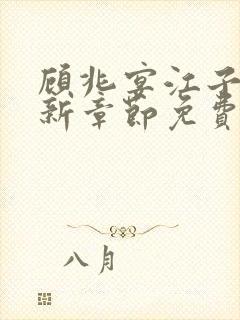 顾兆宴江子
新章节免费
八月